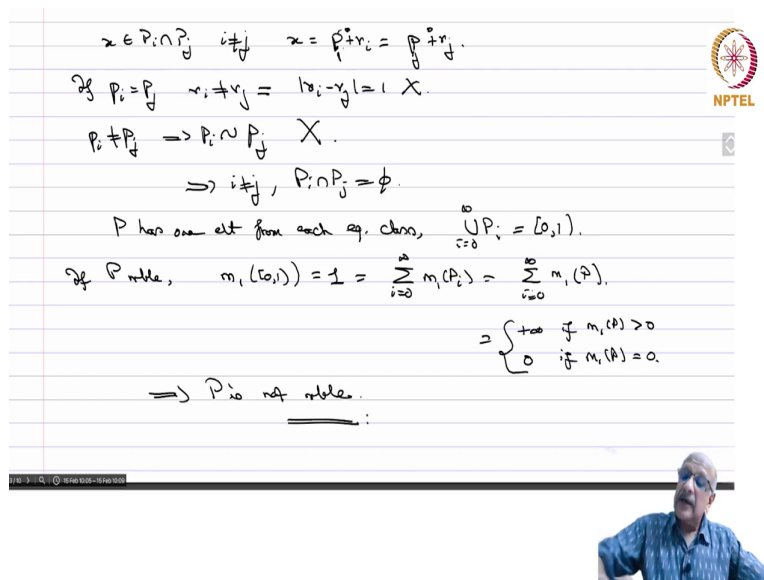 x ∈ Pi ∩ Pj i≠j x = p_i° + r_i = p_j° + r_j.
NPTEL
If p_i = p_j r_i ≠ r_j = |r_i - r_j| = 1 X.
p_i ≠ p_j ⟹ p_i ∼ p_j X.
⟹ i≠j, P_i ∩ P_j = ϕ.
P has one elt from each eq. class, ∞ ∪ i=0 P_i = [0,1).
If P mble, m_1([0,1)) = 1 = ∞ Σ i=0 m_1(P_i) = ∞ Σ i=0 m_1(P).
= { +∞ if m_1(P) > 0
0 if m_1(P) = 0.
⟹ P is not mble.
15 Feb 10:05 – 15 Feb 10:09